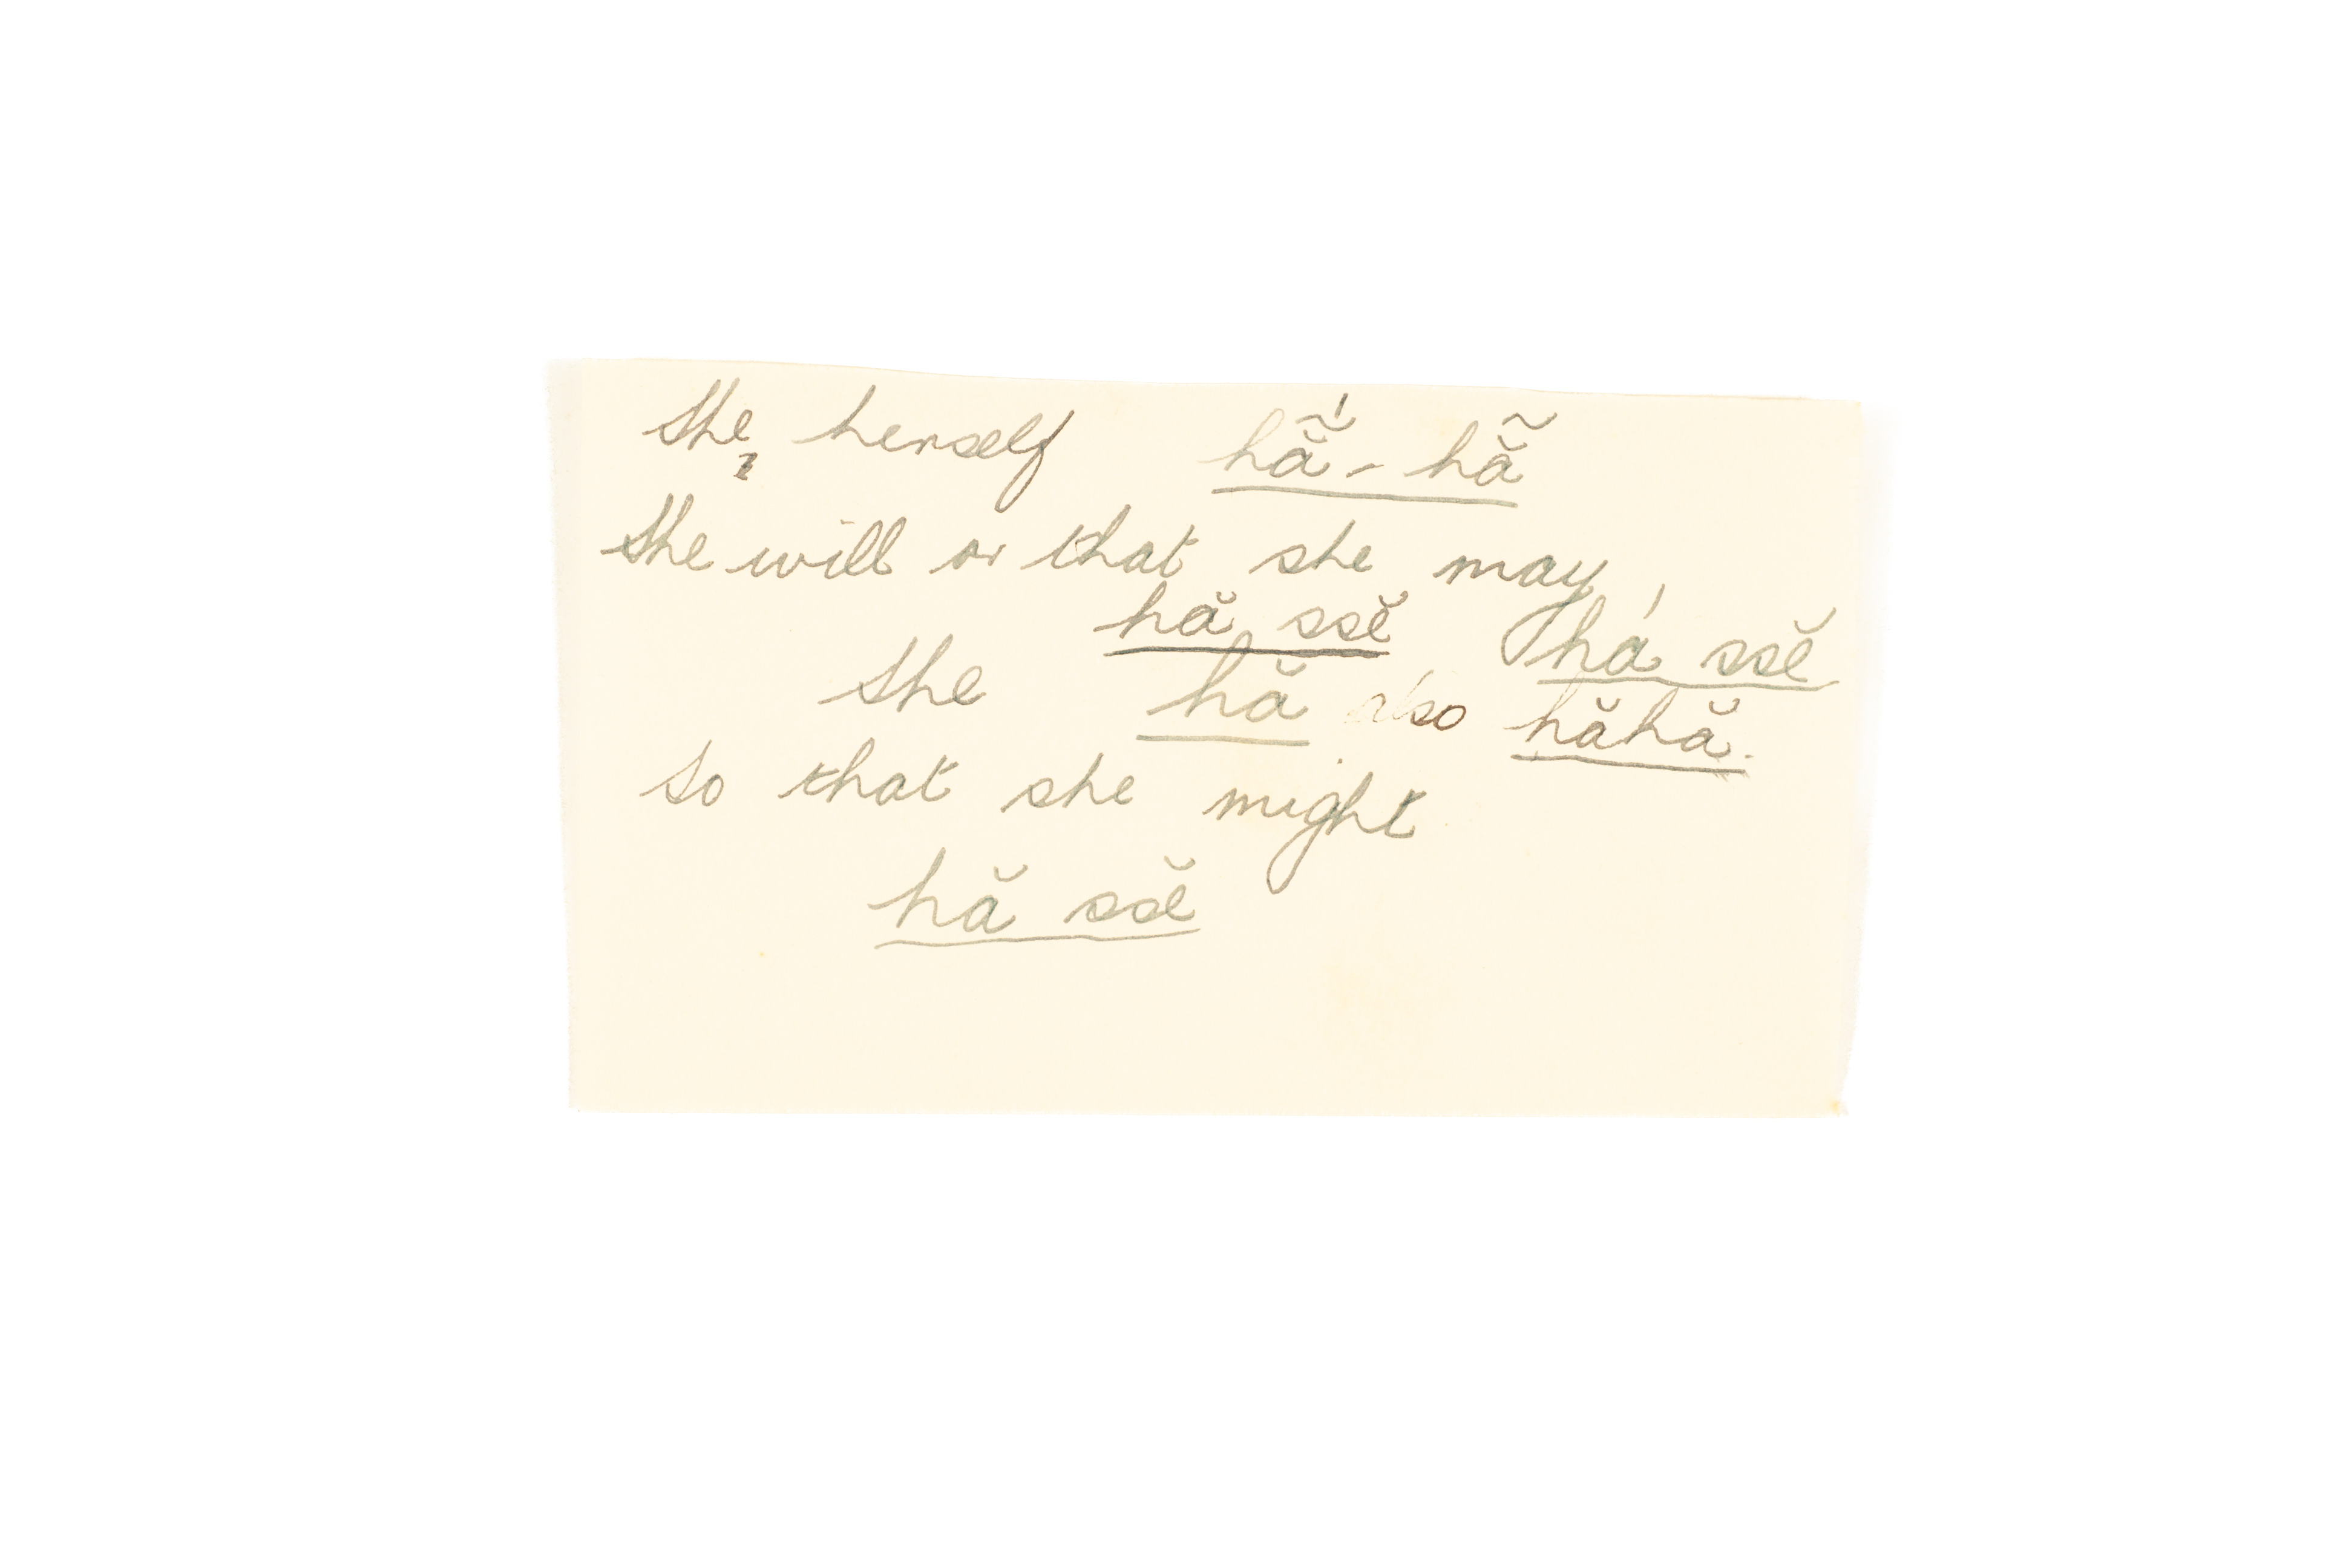 She herself hã̆́ - hã̆
She will or that she may,
hă ssĕ há ssĕ
She hă also hăhă.
So that she might
hă ssĕ